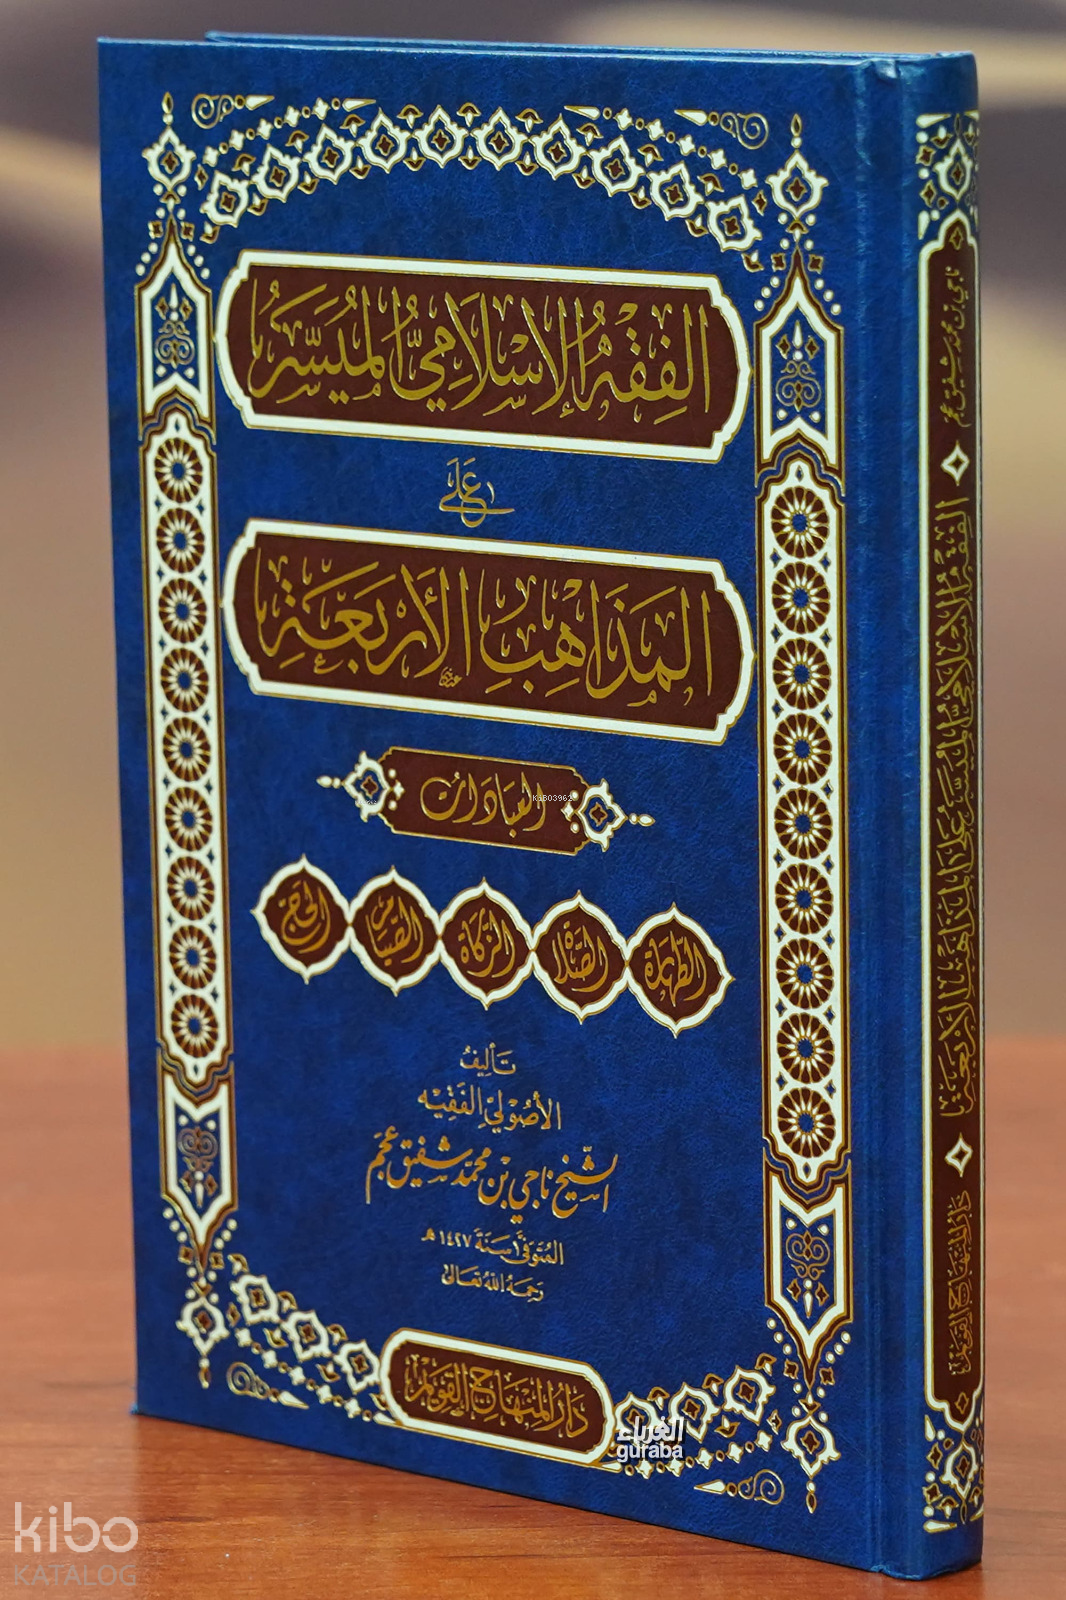 الفِقْهُ الإِسْلَامِيُّ المُيَسَّرُ
عَلَى
المَذَاهِبِ الأَرْبَعَةِ
العِبَادَات
الطَّهَارَة الصَّلَاة الزَّكَاة الصِّيَام الحَجّ
تَأليفُ
الأُصُوليِّ الفَقِيْه
الشَّيخ نَاجي بن محمّد شفيق عَجَم
المُتَوَفَّى سَنَةَ ١٤٢٧ هـ
رَحِمَهُ اللهُ تَعَالَى
دَارُ المِنْهَاج القَوِيم
ناجي بن محمد شفيق عجم
الفِقْهُ الإِسْلَامِيُّ المُيَسَّرُ عَلَى المَذَاهِبِ الأَرْبَعَةِ
دَارُ المِنْهَاج القَوِيم
الغرباء
guraba
kibo
KATALOG